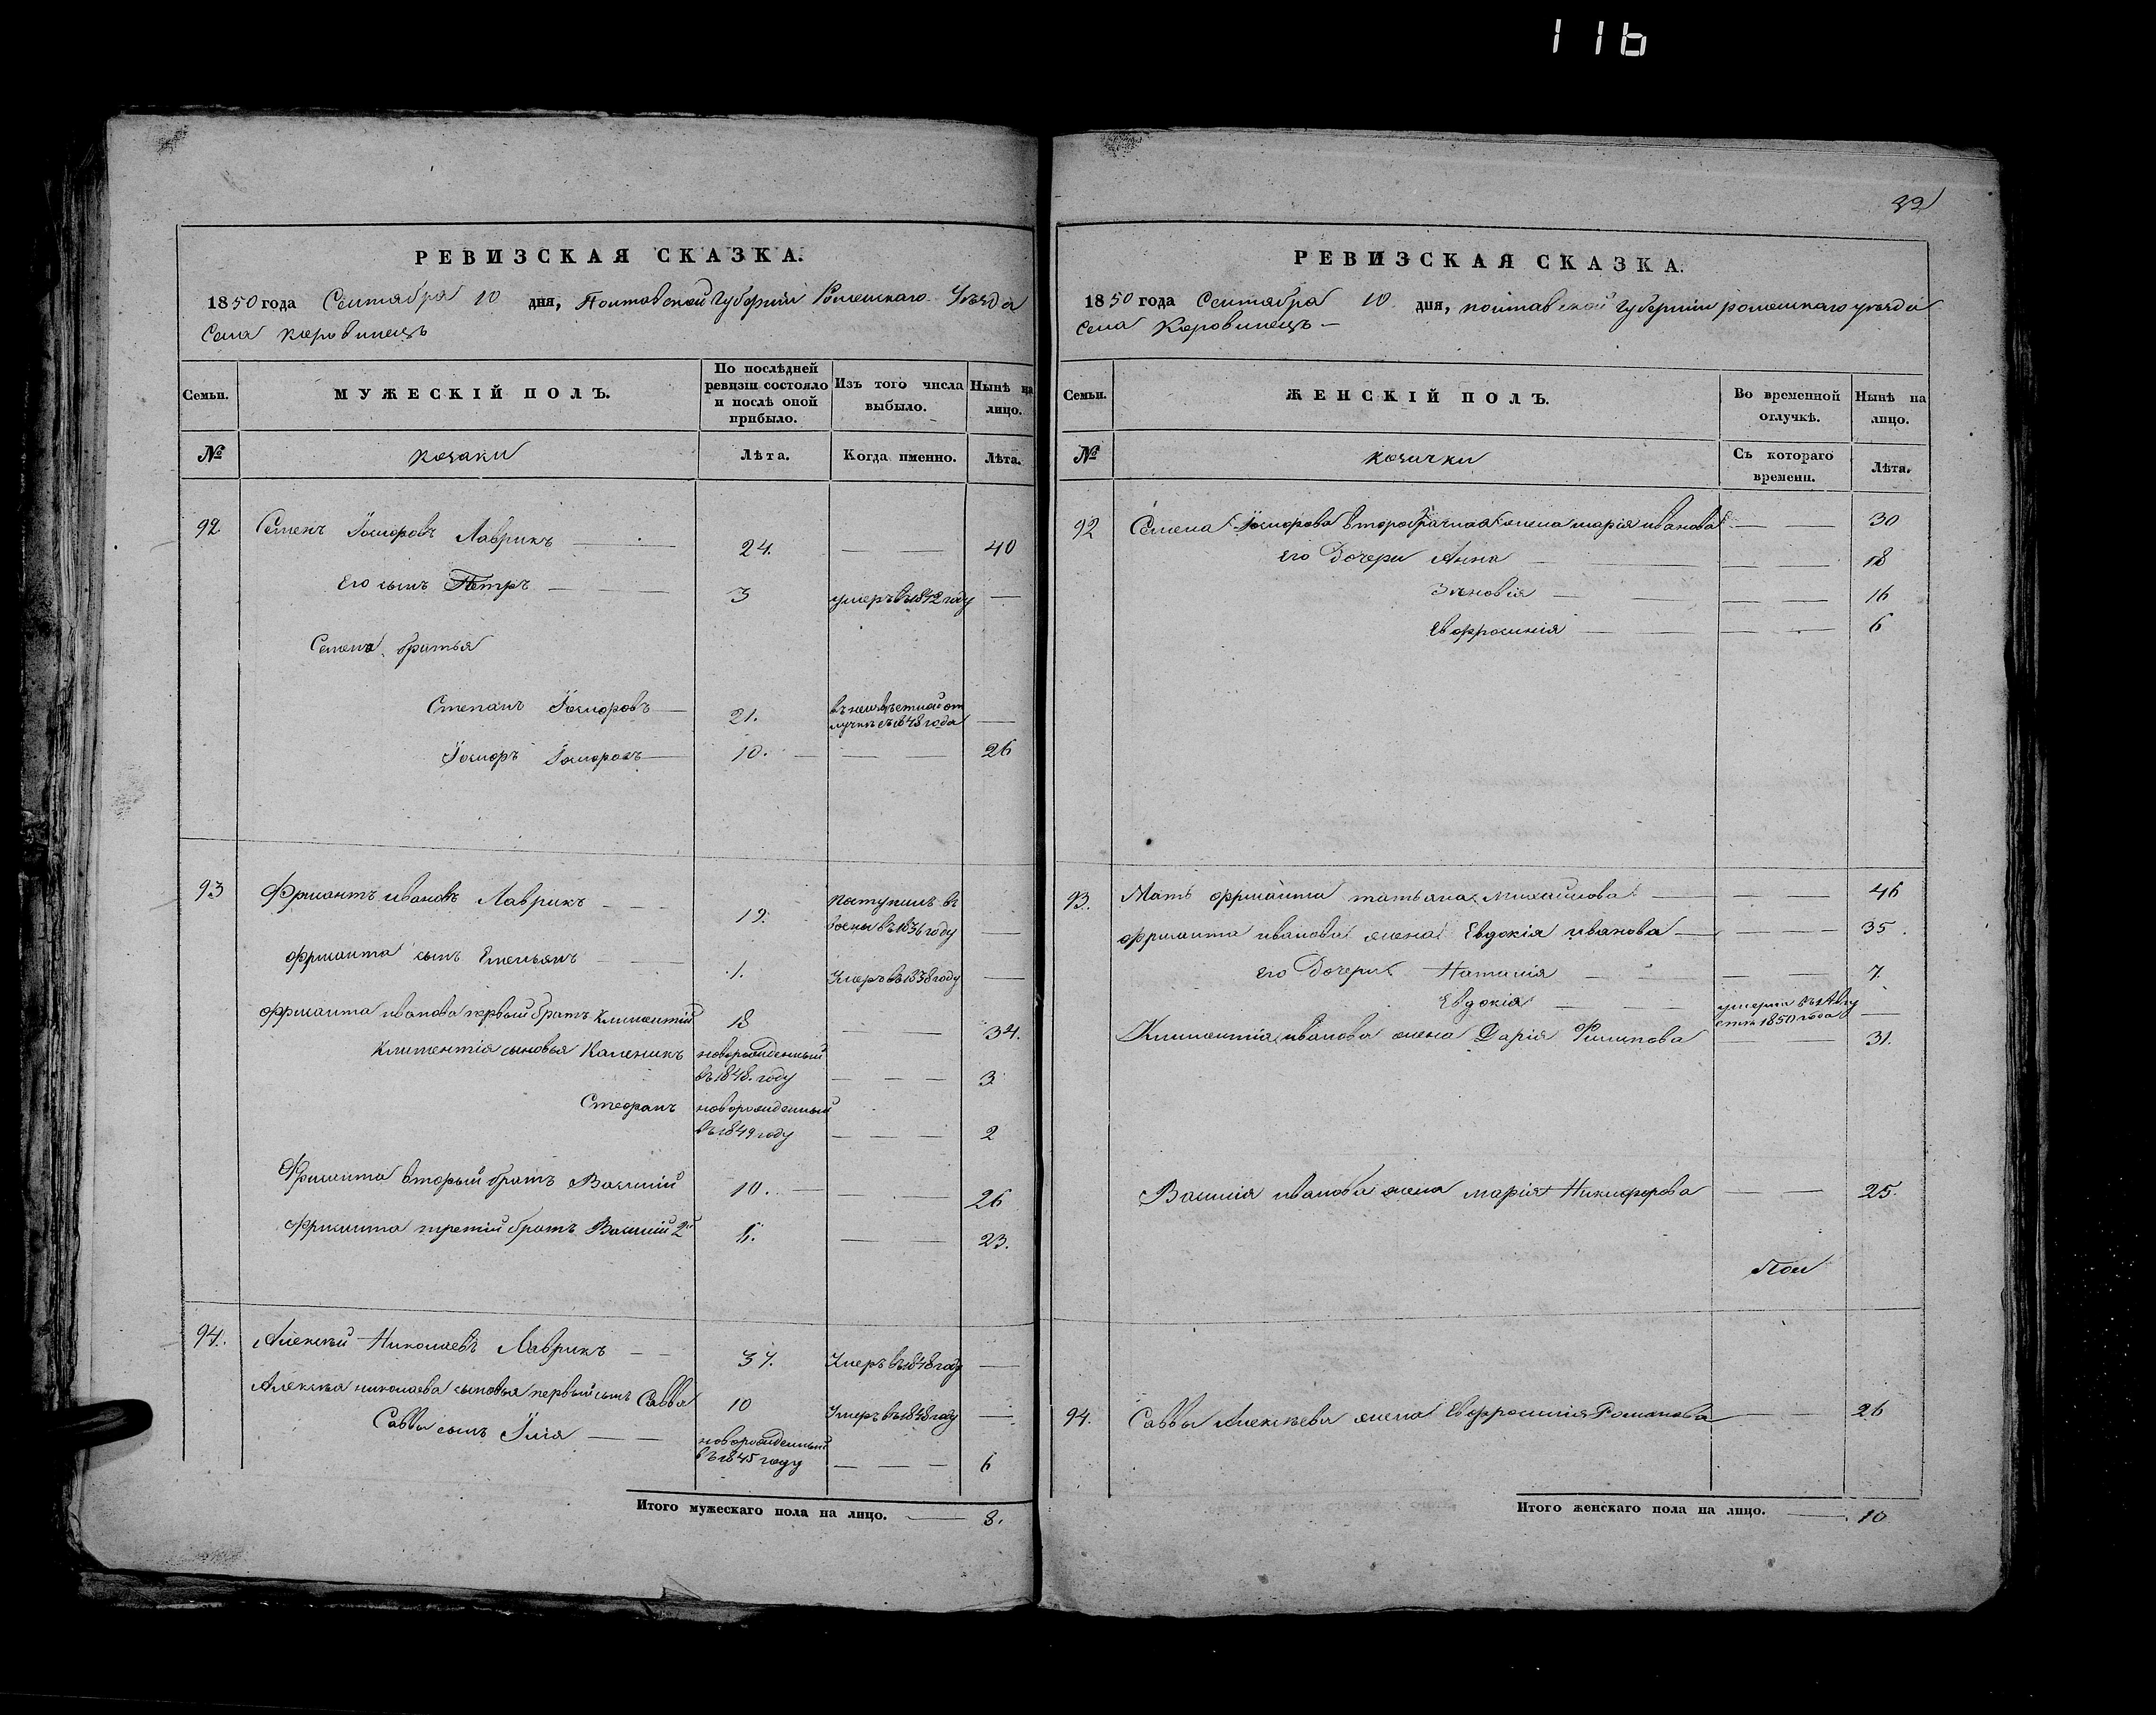 116
РЕВИЗСКАЯ СКАЗКА.
1850 года Сентября 10 дня, Полтавской Губернiи Роменскаго Уѣзда
Села Коровинецъ
Семьи.
МУЖЕСКІЙ ПОЛЪ.
По послѣдней ревизіи состояло и послѣ оной прибыло.
Изъ того числа выбыло.
Нынѣ на лицо.
№
козаки
Лѣта.
Когда именно.
Лѣта.
92 Семенъ Іосифовъ Лаврикъ 24. 40
Его сынъ Петръ 3 умеръ въ 1842 году
Семена братья
Степанъ Іосифовъ 21. въ неизвѣстной отлучкѣ съ 1848 года
Іосифъ Іосифовъ 10. 26
93 Ивановъ Лаврикъ 19. поступилъ въ 1836 году
сынъ Емельянъ 1. Умеръ въ 1838 году
Иванова первый братъ Климентій 18 34.
Климентія сыновья Каленикъ новорожденный
въ 1848. году 3
Стефанъ новорожденный
въ 1849 году 2
вторый братъ Василій 10. 26
третій братъ Василій 2й 23.
94. Алексѣй Николаевъ Лаврикъ 37. Умеръ въ 1848 году
Алексѣя Николаева сыновья первый сынъ Савва 10 Умеръ въ 1848 году
Саввы сынъ Илія новорожденный
въ 1845 году 6
Итого мужескаго пола на лицо. 8.
32
РЕВИЗСКАЯ СКАЗКА.
1850 года Сентября 10 дня, Полтавской Губернiи Роменскаго уѣзда
Села Коровинецъ
Семьи.
ЖЕНСКІЙ ПОЛЪ.
Во временной отлучкѣ.
Нынѣ на лицо.
№
козачки
Съ котораго времени.
Лѣта.
92 Семена Іосифова второбрачная жена Марія Иванова 30
Его Дочери Анна 18
Зѣновія 16
Евфросинія 6
93. Мать Татьяна Михайлова 46
Иванова жена Евдокія Иванова 35.
Его Дочери Наталія 7.
Евдокія умерла въ Августѣ 1850 года
Климентія Иванова жена Дарія Филипова 31.
Василія Иванова жена Марія Никифорова 25.
94. Саввы Алексѣева жена Евфросинія Романова 26
Итого женскаго пола на лицо. 10